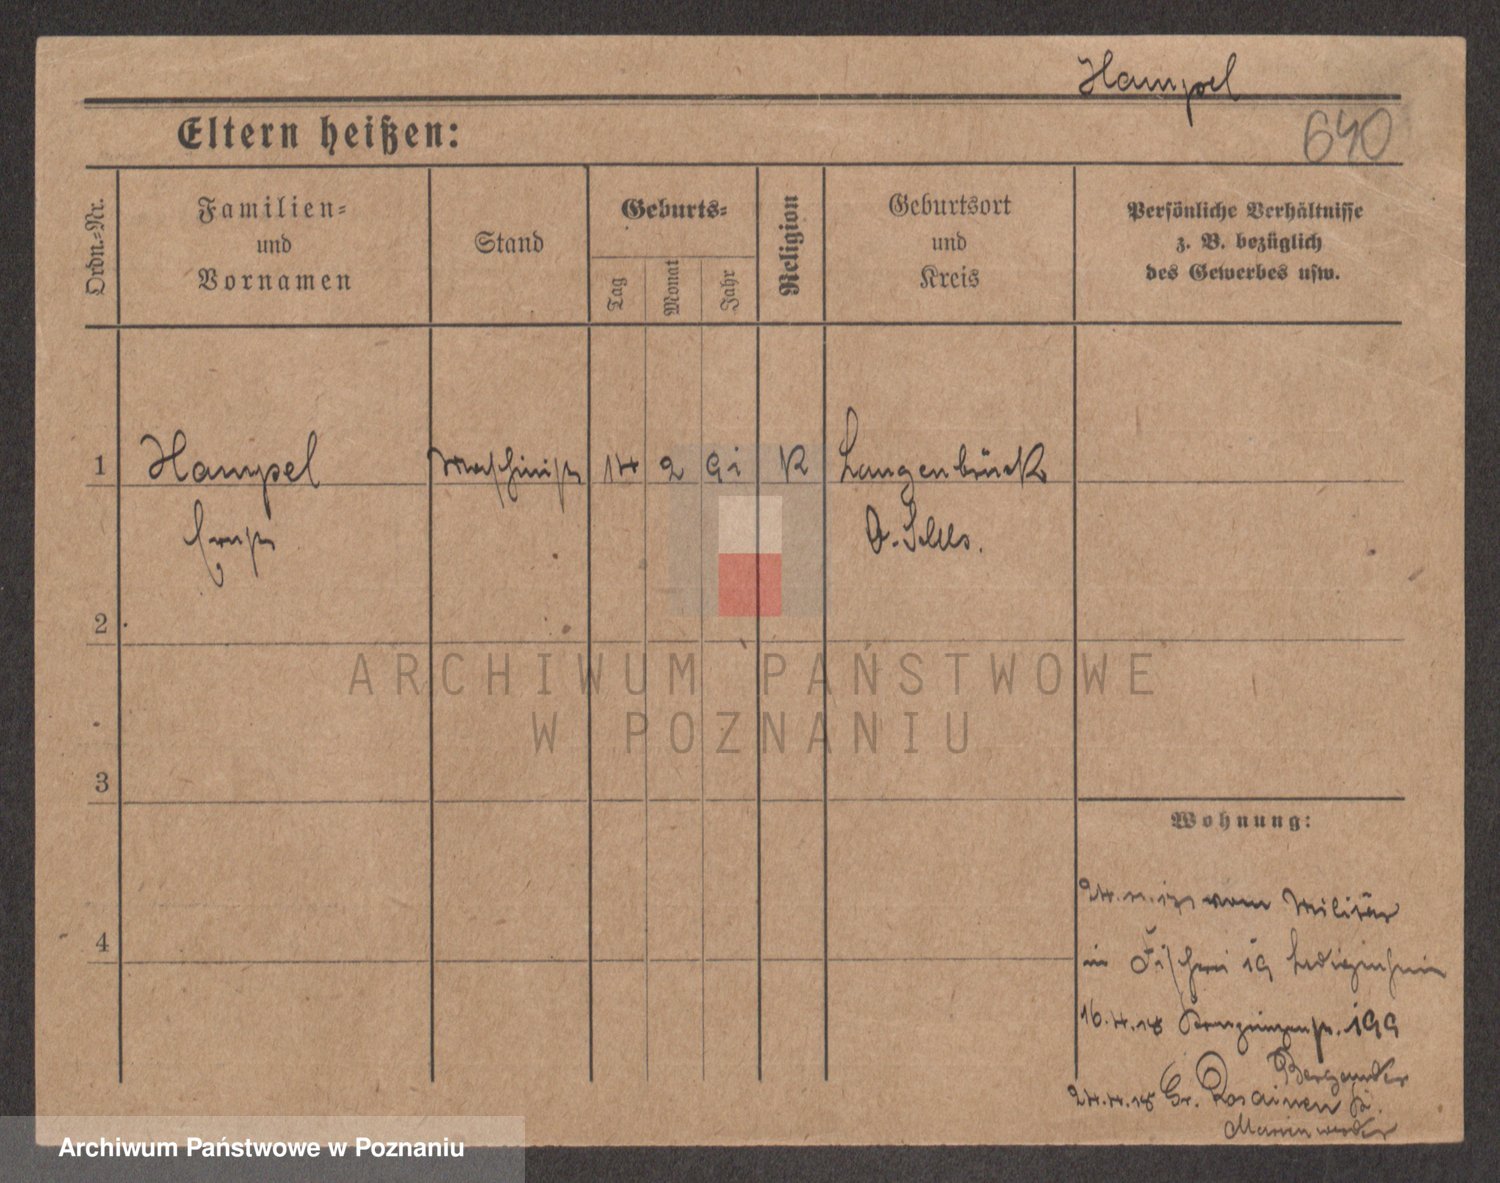 Hampel
640
Eltern heißen:
Ordn.-Nr.
Familien-
und
Vornamen
Stand
Geburts-
Tag
Monat
Jahr
Religion
Geburtsort
und
Kreis
Persönliche Verhältnisse
z. B. bezüglich
des Gewerbes usw.
1 Hampel Maschinist 14 2 91 K Langenbrück
Ernst O. Schles.
2
3
4
Wohnung:
24.11.17 vom Militär
in Fischerei 19 Ledigenheim
16.4.18 199
Bergander
24.4.18 Gr. Rosainen Kr.
Marienwerder
ARCHIWUM PAŃSTWOWE
W POZNANIU
Archiwum Państwowe w Poznaniu